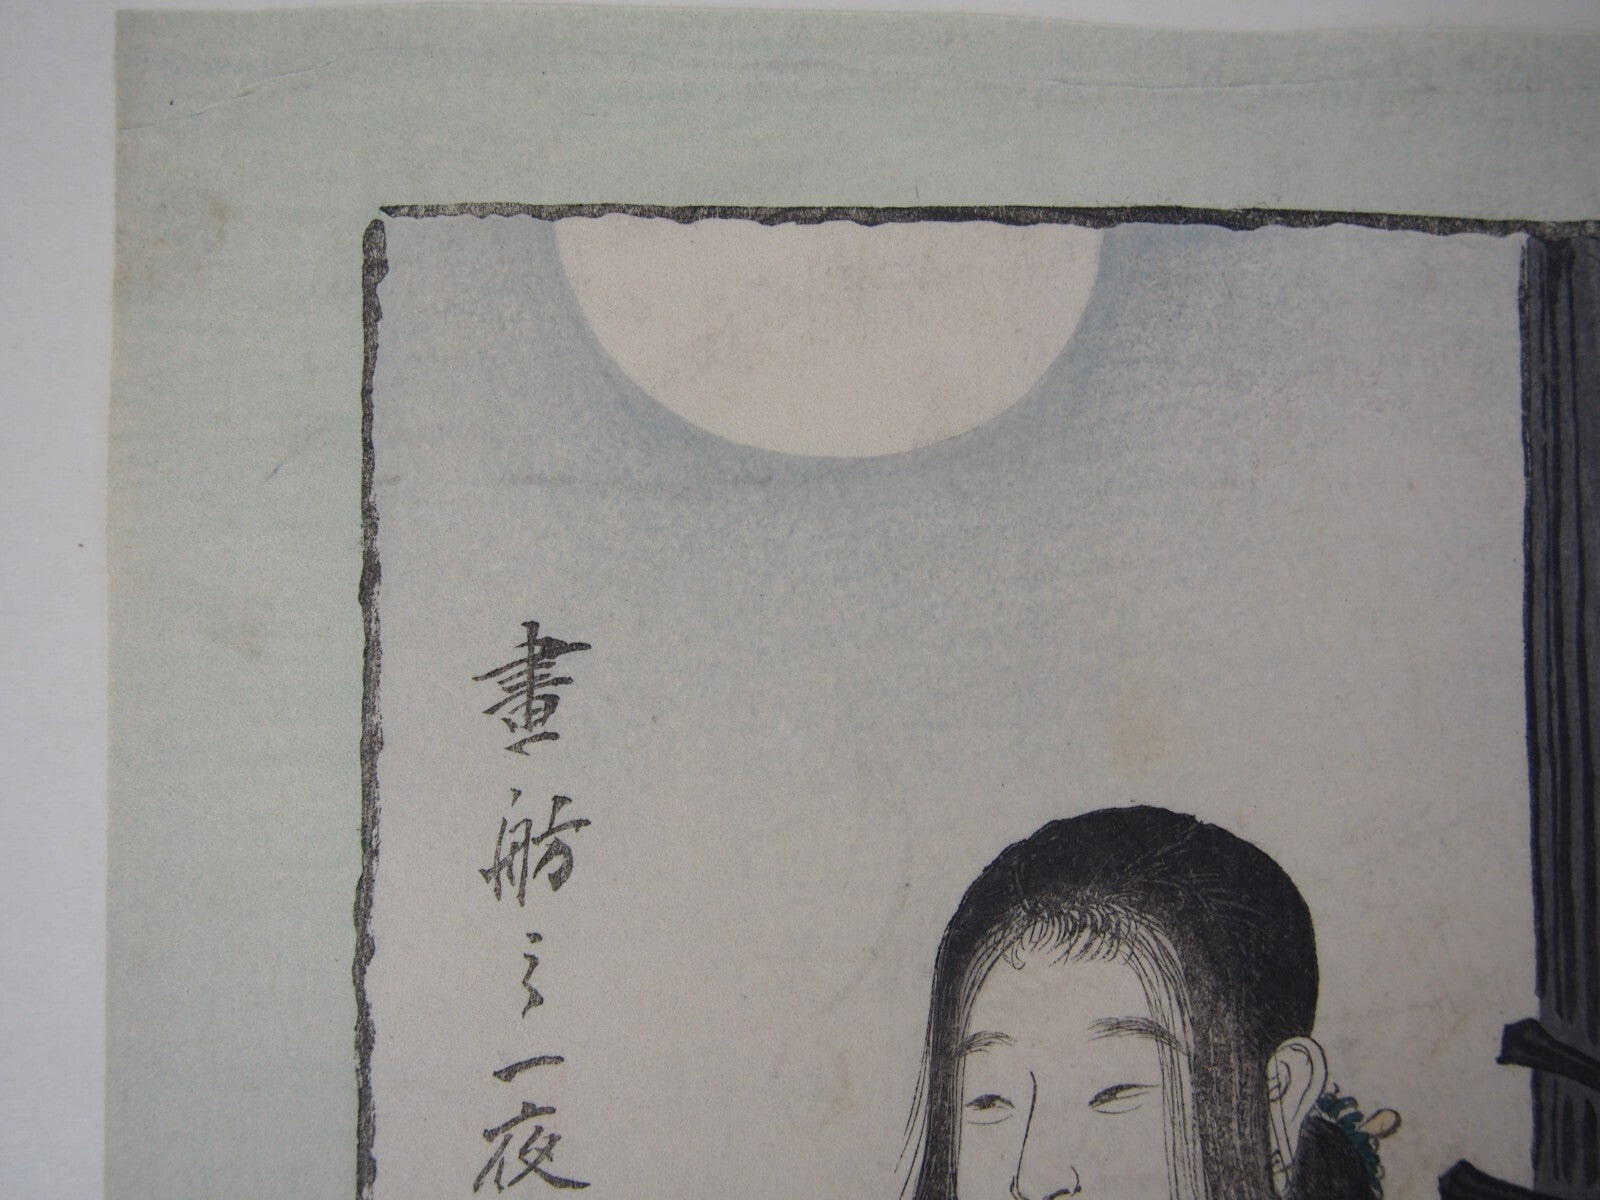 畫舫之一夜